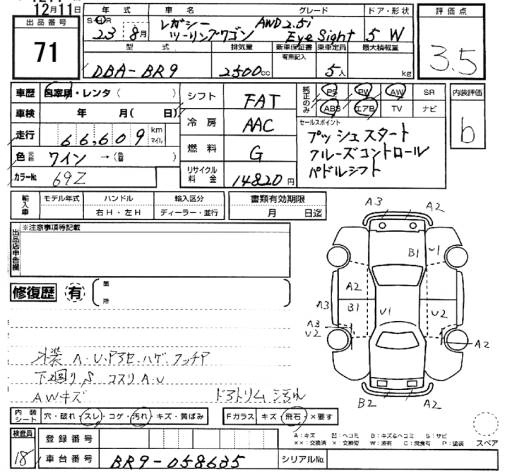 12月11日
出品番号
71
年式 車名 グレード ドア・形状
SH
23年 8月 レガシー ツーリングワゴン AWD 2.5i Eye Sight 5 W
型式 排気量 新車保証書 乗車定員 最大積載量
有無記入
DBA-BR9 2500cc 5人 kg
評価点
3.5
車歴 自家用・レンタ( )
車検 年 月( 日)
走行 66,609 km マイル
色 ワイン →(
カラーNo. 69Z
シフト FAT
冷房 AAC
燃料 G
リサイクル料金 14820円
純正のみ PS PW AW SR
ABS エアB TV ナビ
セールスポイント
プッシュスタート
クルーズコントロール
パドルシフト
内装評価
b
輸入車 モデル年式 ハンドル 輸入区分
右H・左H ディーラー・並行
書類有効期限
月 日迄
出品店申告欄
※注意事項等記載
修復歴 有
外装 A・U・P3セ・ハゲ・タッチP
下廻りS コスリ A・U
AWキズ ドアトリム汚れ
A3 A2
B1 U1
A2
B1 U1
A3 U2
U2
A2
B2 A2
内装シート 穴・破れ・スレ・コゲ・汚れ・キズ・黄ばみ
Fガラス キズ・飛石・×要す
A:キズ B:ヘコミ S:サビ
スペア
検査員
18
登録番号
車台番号 BR9-058635
シリアルNo.